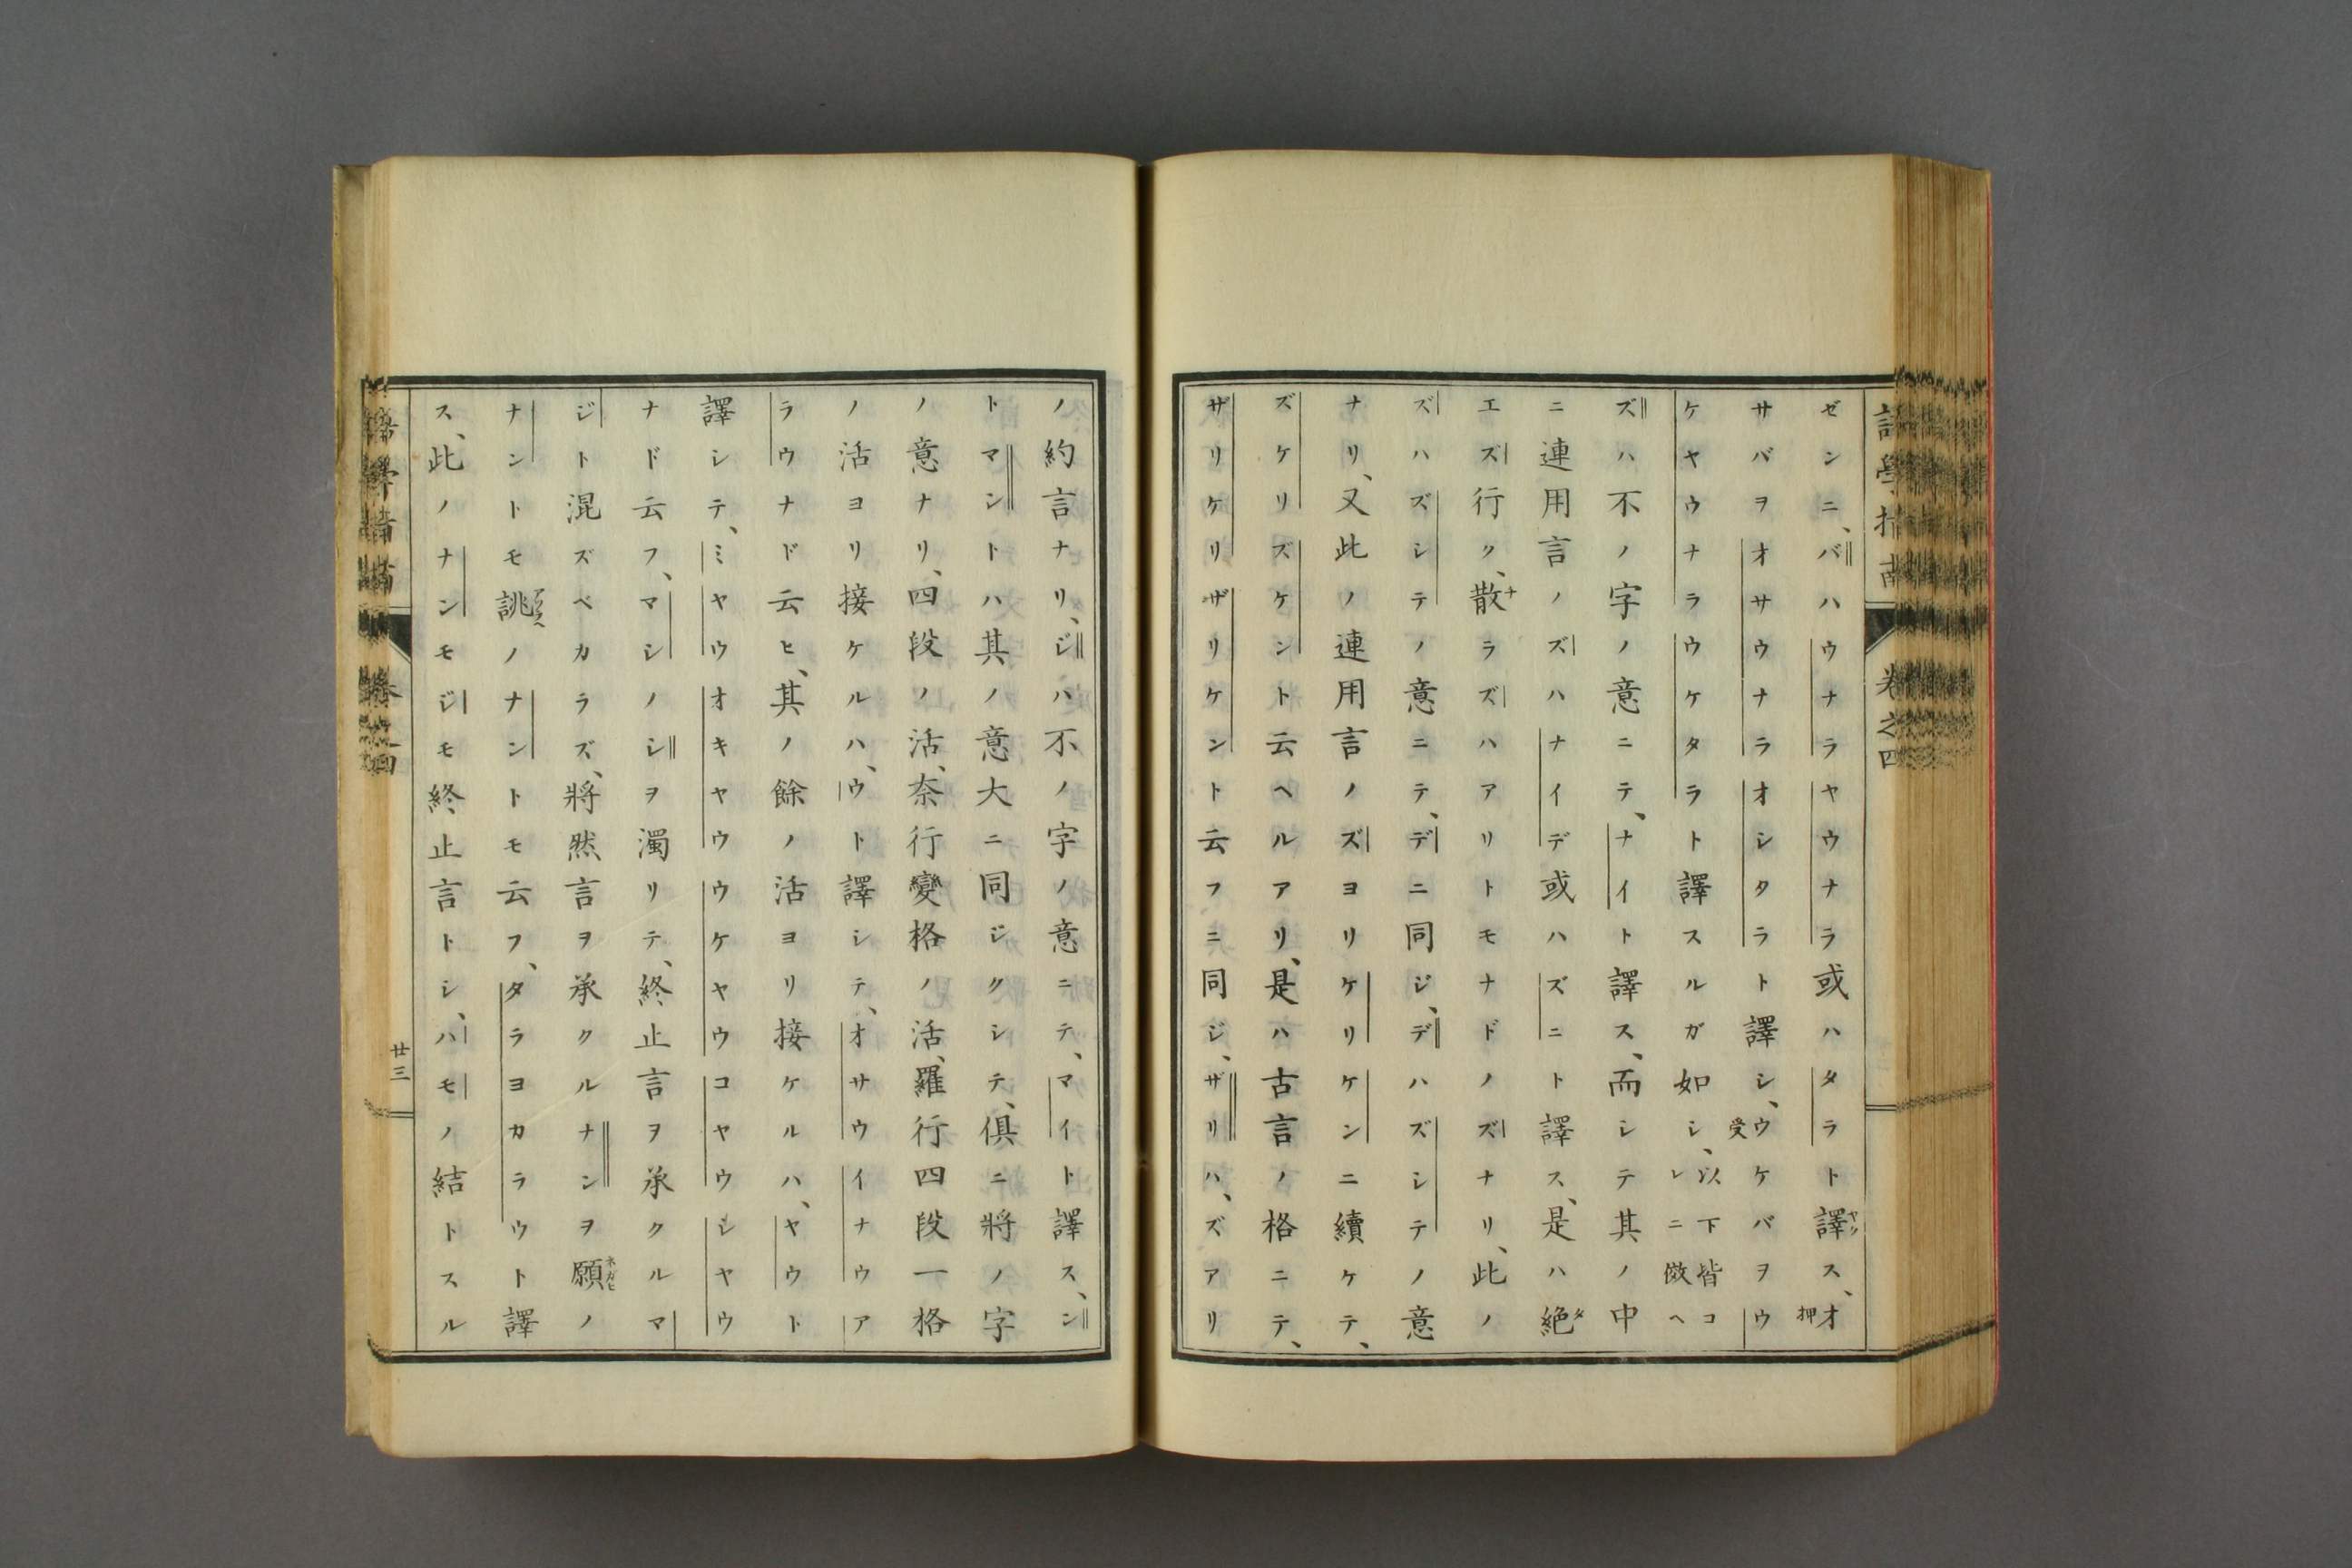 語學指南
卷之四
ゼンニ、バハウナラヤウナラ或ハタラト譯ヤクス、オ押
サバヲオサウナラオシタラト譯シ、ウ受ケバヲウ
ケヤウナラウケタラト譯スルガ如シ、以下皆コレニ倣ヘ
ズハ不ノ字ノ意ニテ、ナイト譯ス、而シテ其ノ中
ニ連用言ノズハナイデ或ハズニト譯ス、是ハ絶タ
エズ行ク、散チラズハアリトモナドノズナリ、此ノ
ズハズシテノ意ニテ、デニ同ジ、デハズシテノ意
ナリ、又此ノ連用言ノズヨリケリケンニ續ケテ、
ズケリズケント云ヘルアリ、是ハ古言ノ格ニテ、
ザリケリザリケント云フニ同ジ、ザリハ、ズアリ
ノ約言ナリ、ジハ不ノ字ノ意ニテ、マイト譯ス、ン
トマントハ其ノ意大ニ同ジクシテ、倶ニ將ノ字
ノ意ナリ、四段ノ活、奈行變格ノ活、羅行四段一格
ノ活ヨリ接ケルハ、ウト譯シテ、オサウイナウア
ラウナド云ヒ、其ノ餘ノ活ヨリ接ケルハ、ヤウト
譯シテ、ミヤウオキヤウウケヤウコヤウシヤウ
ナド云フ、マシノシヲ濁リテ、終止言ヲ承クルマ
ジト混ズベカラズ、將然言ヲ承クルナンヲ願ネガヒノ
ナントモ誂アツラヘノナントモ云フ、タラヨカラウト譯
ス、此ノナンモジモ終止言トシ、ハモノ結トスル
語學指南
卷之四
廿三